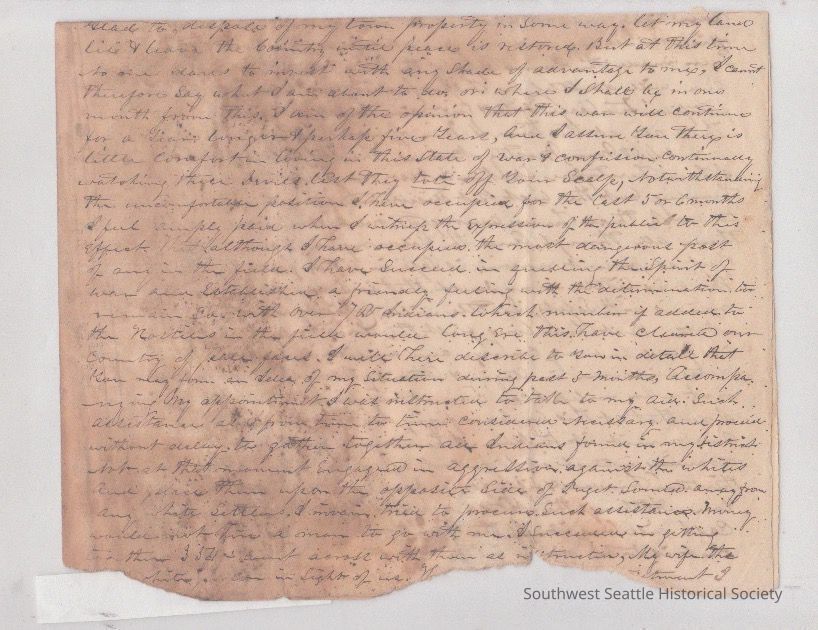 glad to dispose of my town property in some way. let my land
lie & leave the Country until peace is restored. But at this time
no one dares to invest with any Shade of advantage to me, I cannot
therefore Say what I am about to do, or where I Shall be in one
month from this. I am of the opinion that this war will continue
for a Year longer & perhaps five Years, and I assure You there is
little Comfort in living in this State of war & confusion Continually
watching these Devils lest they take off Your Scalp, Notwithstanding
the uncomfortable position I have occupied for the last 5 or 6 months
I feel amply paid when I witness the expression of the public to this
effect. That although I have occupied the most dangerous post
of any in the field. I have Succeed in quelling the Spirit of
war and Establishing a friendly feeling with the determination to
remain So, with over Indians. Which number if added to
the Hostiles in the field would long Ere this have cleaned our
Country of pale faces. I will here describe to You in detail that
You may form an Idea of my Situation during past 5 months. Accompa
-nying My appointment I was instructed to take to my aid Such
assistance as from time to time considered Necessary and proceed
without delay to gather together all Indians found in my district
Not at that moment Engaged in aggressive against the whites
and place them upon the opposite Side of Puget Sound away from
any white settlers. I in vain tried to procure Such assistance. Money
would not hire a man to go with me. I Succeeded in getting
together 354 & went across with them as instructed, My wife the
white person in Sight of us.
Southwest Seattle Historical Society